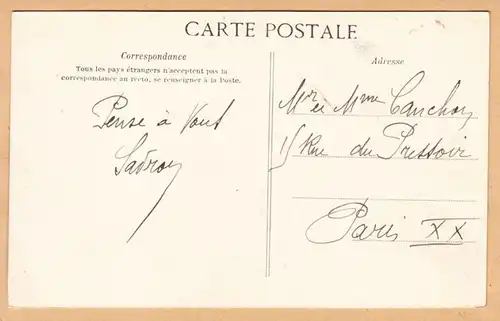 CARTE POSTALE
Correspondance
Tous les pays étrangers n'acceptent pas la
correspondance au recto, se renseigner à la Poste.
Pense à Vous
Adresse
Mr et Mme Cauchoy
15 Rue du Pressoir
Paris XX